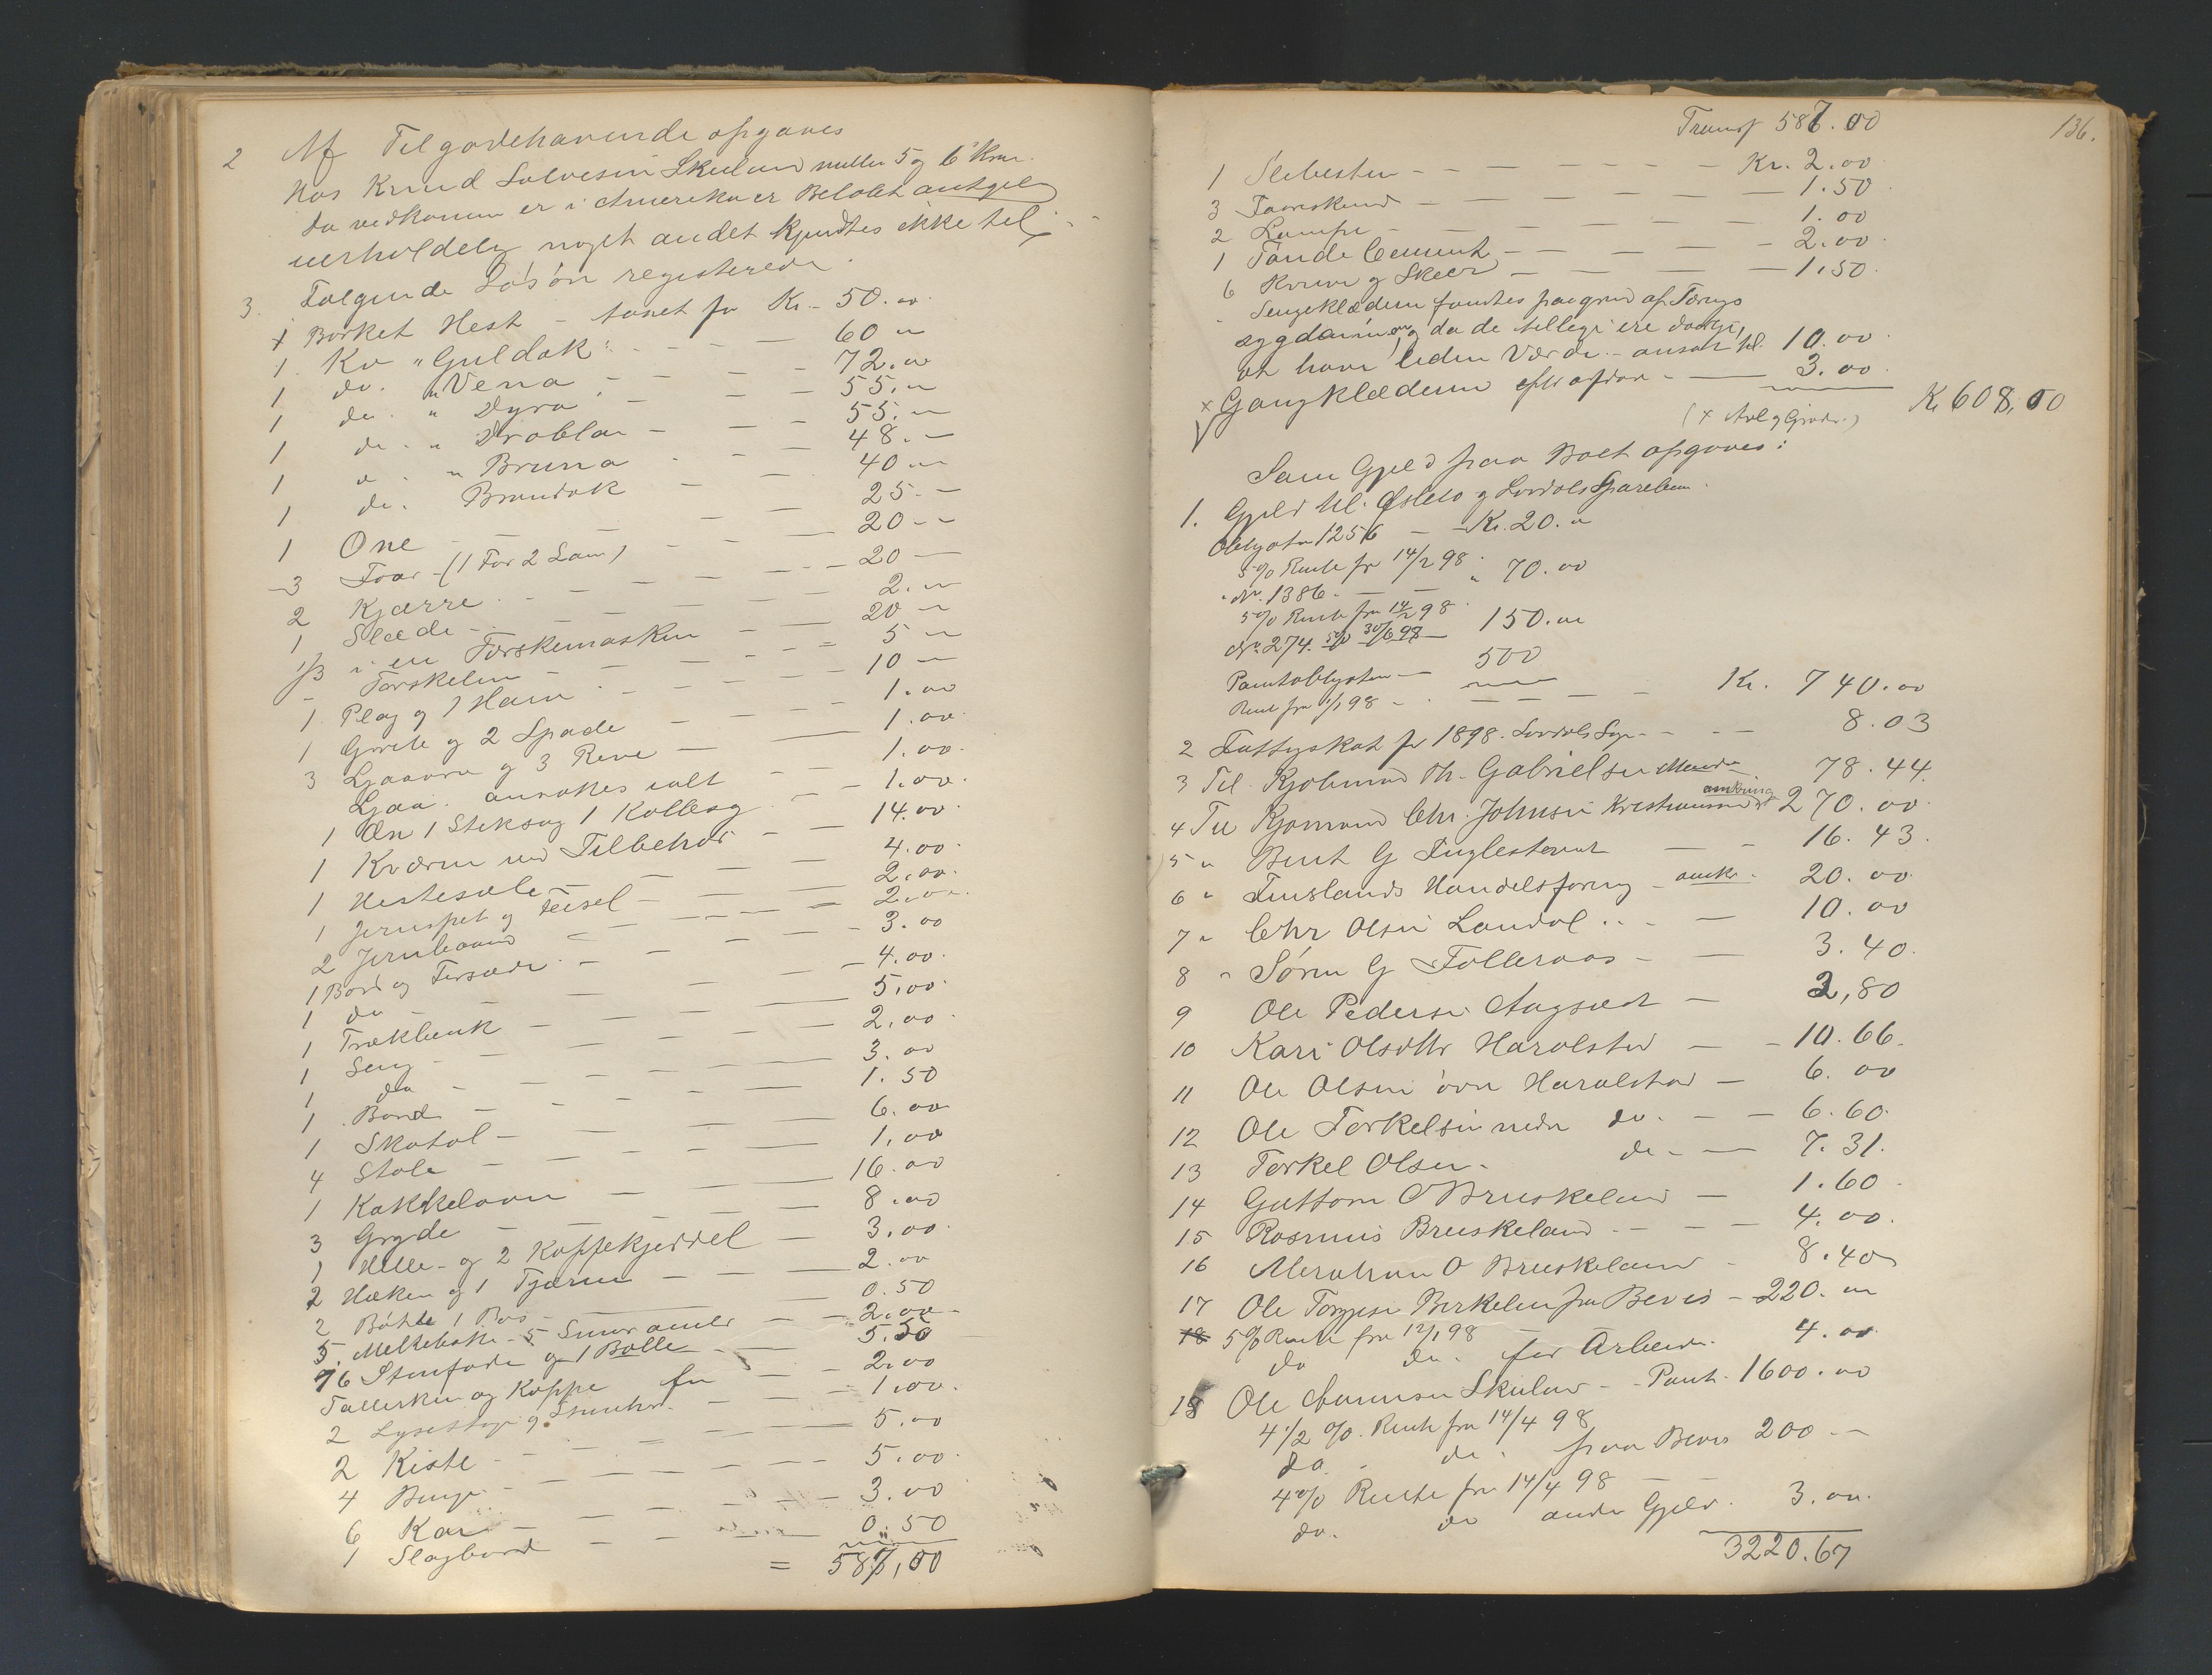 2 Af Tilgodehavende opgaves
hos Knud Salvesen Skuland mellem 5 og 6 Kron.
da vedkommen er i Amerika er Beløbet antagelig
uerholdelig noget andet kjendtes ikke til.
3. Følgende Løsøre registerede
1 Borket Hest - taxet for Kr - 50.00
1. Ko "Guldak" - - - 60 "
1 do. "Vena - - - 72. "
1 do. " Dyra - - 55. "
1 do. " Drabla - - 55. "
1 " " Bruna - - 48. -
1 do. Brandak - - 40 "
1 Oxe - - - 25. -
3 Faar - (1 For 2 Lam) - - 20 - -
2 Kjærre - - - 20 -
1 Slæde - - - 2. "
1/3 i en Tærskemaskin - - 20 "
- Tærskelin - - 5 "
1 Plog og 1 Harv - - 10 "
1 Grev og 2 Spade - - 1.00
3 Ljaaorv og 3 Rive - - 1.00
Ljaa ansattes ialt - - 1.00
1 Øx 1 Stiksag 1 Kollesag - - 1.00
1 Kværn med Tilbehør - - 14.00
1 Hestesæle - - 4.00
1 Jernspet og Feisel - - 2.00
2 Jernbaand - - 2.00
1 Bord og Forsæde - - 3.00
1 do - - 4.00
1 Trækbenk - - 5.00
1 Seng - - 2.00
1 do - - 3.00
1 Bord - - 1.50
1 Skatol - - 6.00
4 Stole - - 1.00
1 Kakkelovn - - 16.00
3 Gryde - - 8.00
1 Helle - og 2 Kaffekjeddel - 3.00
2 Haken og 1 Tjærne - - 2.00
2 Bøtte 1 Bos - - 0.50
5. Melkebøtte - 5 Smør amler - - 2.00
96 Stenfade og 1 Bolle - - 5.50
Tallerken og Koppe for - - 2.00
2 Lysestage og - 1.00
2 Kiste - - 5.00
4 Binge - - 5.00
6 Kar - - 3.00
1 Slagbord - - 0.50
= 587,00
136.
Transp 587.00
1 Slibesten - - - Kr. 2.00
3 Faareskind - - - 1.50
2 Lampe - - - 1.00
1 Tønde Cement - - - 2.00
6 Knive og Skeer - - - 1.50
Sengeklæderne fandtes paagrund af Tærings
sygdommen og da de tillige ere daarlige,
at have liden Værdi - ansat til 10.00
x Gangklæderne efter afdøde - 3.00
Kr 608,00
Som Gjæld paa Boet opgaves:
1. Gjæld til Øslebø og Laudals Sparebank
Obligation 1256 - Kr. 20. "
5% Rente fra 14/2 98
" Nr. 1386 - - " 70.00
5% Rente fra 14/2 98
Nr. 274. 5% 30/6 98 - 150. "
Pantobligation - 500
Rente fra 1/1 98 - - - Kr. 740.00
2 Fattigskat for 1898. Laudals Sogn - - 8.03
3 Til Kjøbmand Th. Gabrielsen Mandal 78.44.
4 Til Kjømand Chr. Johnsen Kristianssand omkring 270.00
5 " Bernt G Fuglestvedt - - 16.43.
6 " Finslands Handelsforening - omkr. 20.00
7 " Chr Olsen Laudal - - 10.00
8 " Søren G Folleraas - - 3.40.
9 Ole Pedersen Augsæd - 2,80
10 Kari Olsdtr Haralstad - - 10.66.
11 Ole Olsen øvre Haralstad - 6.00
12 Ole Torkelsen nedre do. - - 6.60
13 Torkel Olsen - do - - 7.31.
14 Guttorm O Bruskeland - 1.60
15 Rasmus Bruskeland - - - 4.00.
16 Abraham O Bruskeland - 8.40
17 Ole Torjesen Birkelien for Bevis - 220. "
18 5% Rente fra 12/1 98
do do. for Arbeide. 4.00
18 Ole Aanensen Skuland - - Pant - 1600.00
4 1/2 %. Rente fra 14/4 98
do. " do. " paa Bevis 200 -
4% Rente fra 14/4 98 - -
do. do anden Gjæld. 3.00.
3220.67